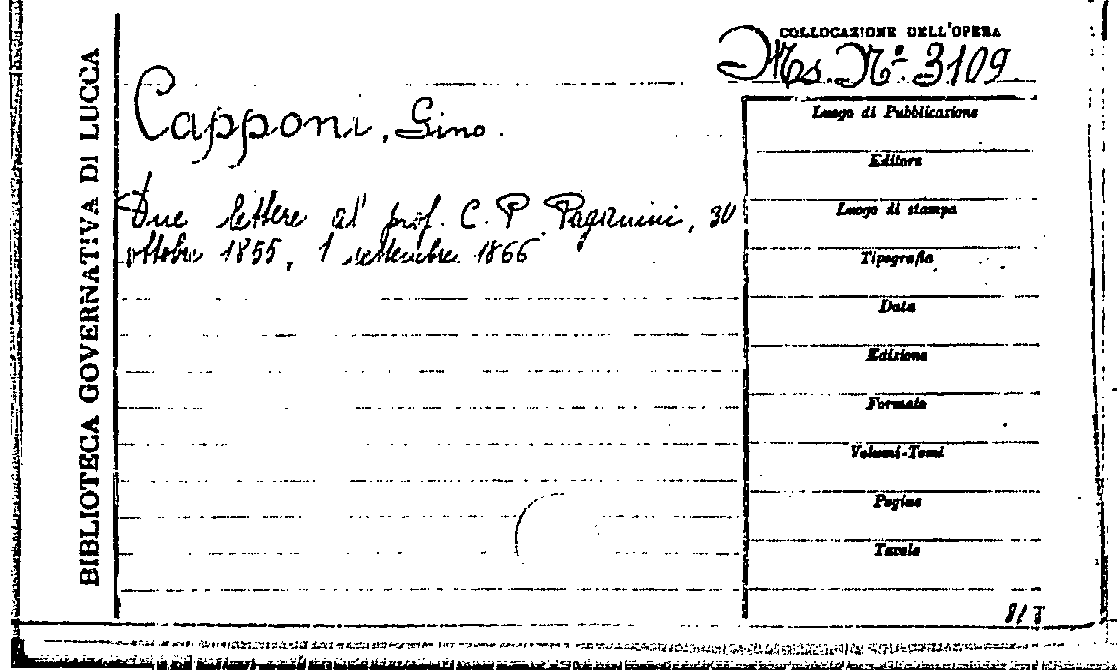 BIBLIOTECA GOVERNATIVA DI LUCCA
COLLOCAZIONE DELL'OPERA
Ms. Nº. 3109
Capponi, Gino.
Due lettere al prof. C. P. Paganini, 30
ottobre 1855, 1 settembre 1866
Luogo di Pubblicazione
Editore
Luogo di stampa
Tipografia
Data
Edizione
Formato
Volumi-Tomi
Pagine
Tavole